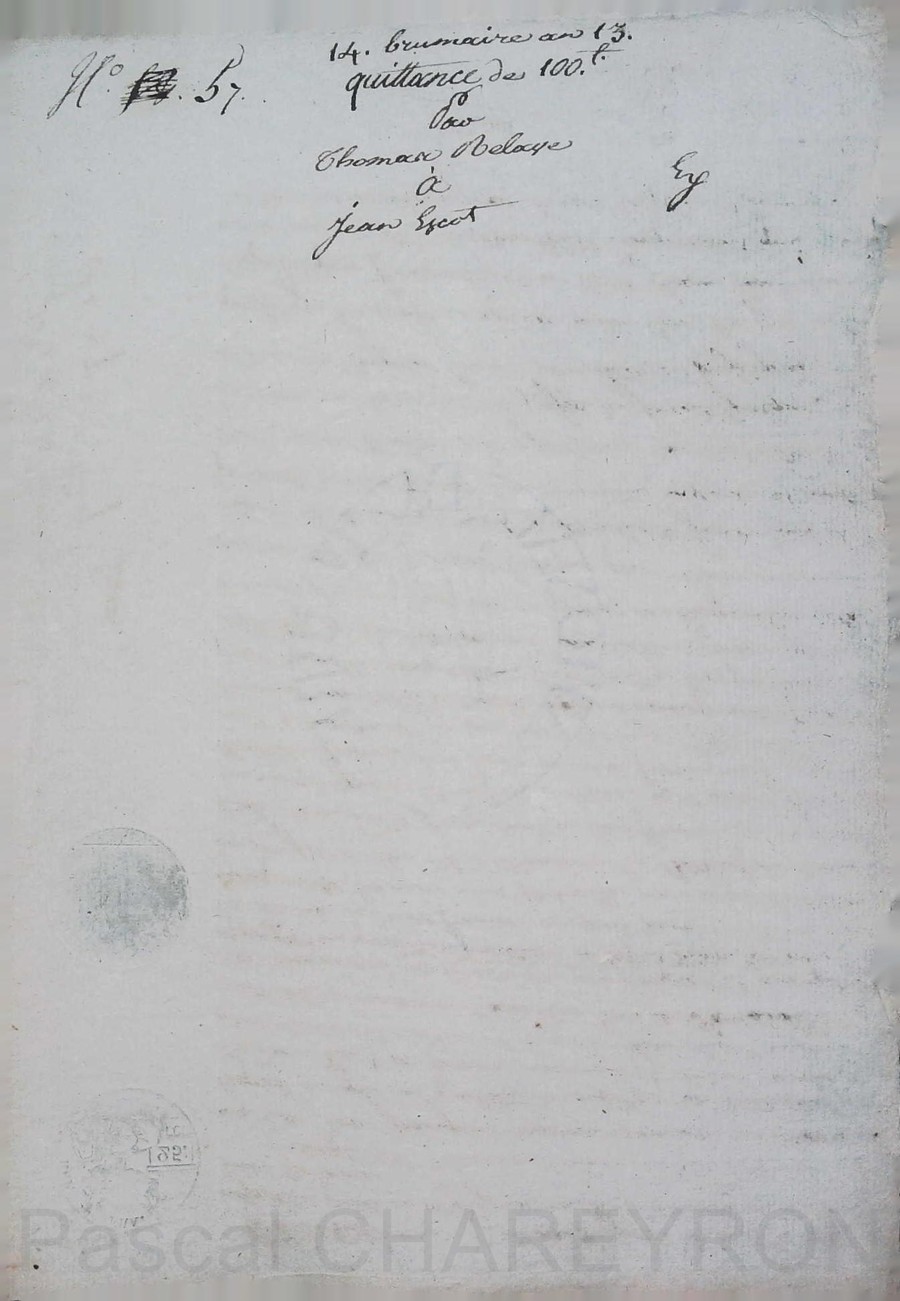 14. brumaire an 13.
N.° 57.
quittance de 100.#
Par
Thomas Relave
à
Jean Escot
Ey
Pascal CHAREYRON